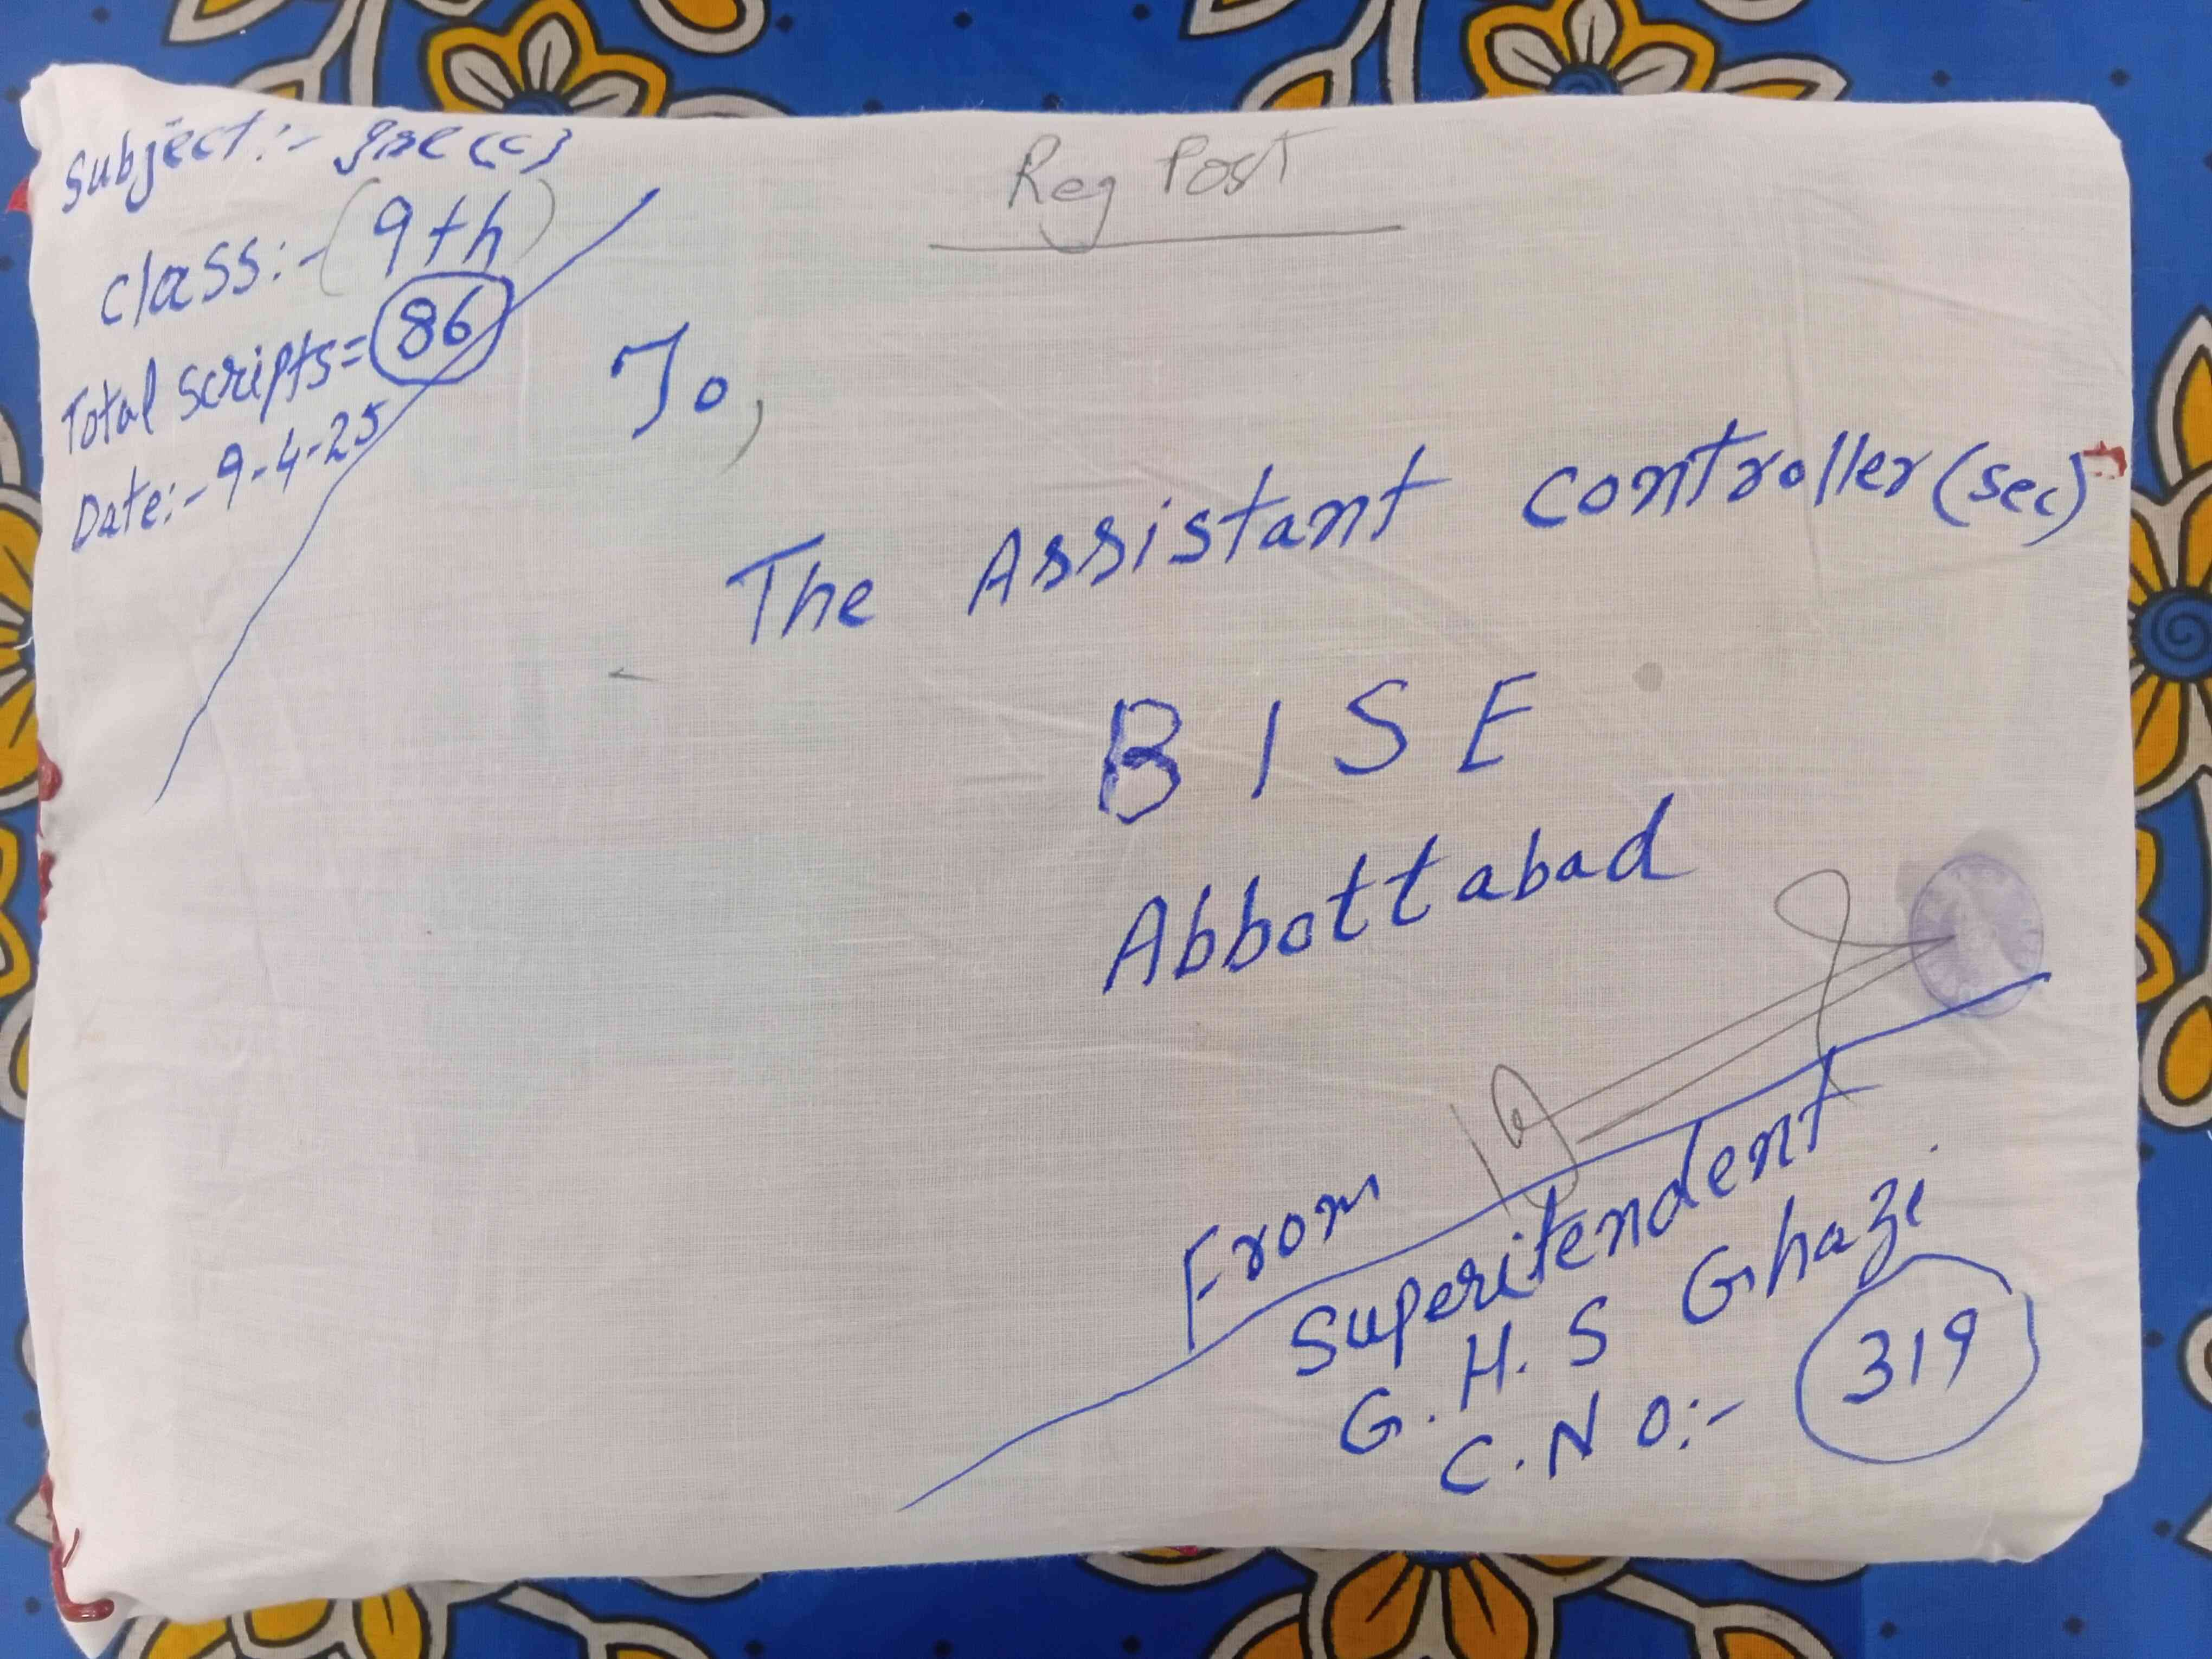 Reg Post
Subject:- Isl (C)
Class:- (9th)
Total Scripts= 86
Date:- 9-4-25
To,
The Assistant Controller (Sec)
B I S E
Abbottabad
From
Superitendent
G. H. S Ghazi
C. No:- 319